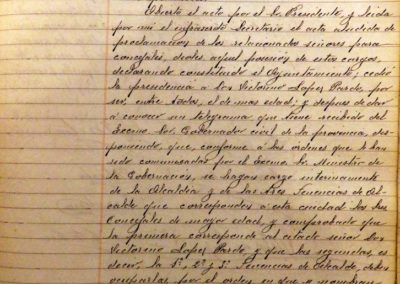 Abierta el acto por el Sr. Presidente y leida
por mí el infrascrito Secretario el acta de
proclamacion de los relacionados señores para
concejales, dióles aquel posesión de estos cargos,
declarando constituido el Ayuntamiento; ceder
la presidencia á Don Victorino Lopez Pardo por
ser, entre todos, el de mas edad; y despues de dar
á conocer un telegrama que tiene recibido del
Excmo Sor. Gobernador civil de la provincia, dis-
poniendo que, conforme á las órdenes que le han
sido comunicadas por el Excmo Sr. Ministro de
la Gobernación, se hagan cargo interinamente
de la Alcaldía y de las tres Tenencias de Al-
calde que corresponden á esta ciudad los Sres
Concejales de mayor edad, y comprobado que
la primera corresponde al citado señor Don
Victorino Lopez Pardo y que las segundas, es
decir, la 1ª, 2ª y 3ª Tenencias de Alcalde, deben
ocuparlas por el orden en que se nombran